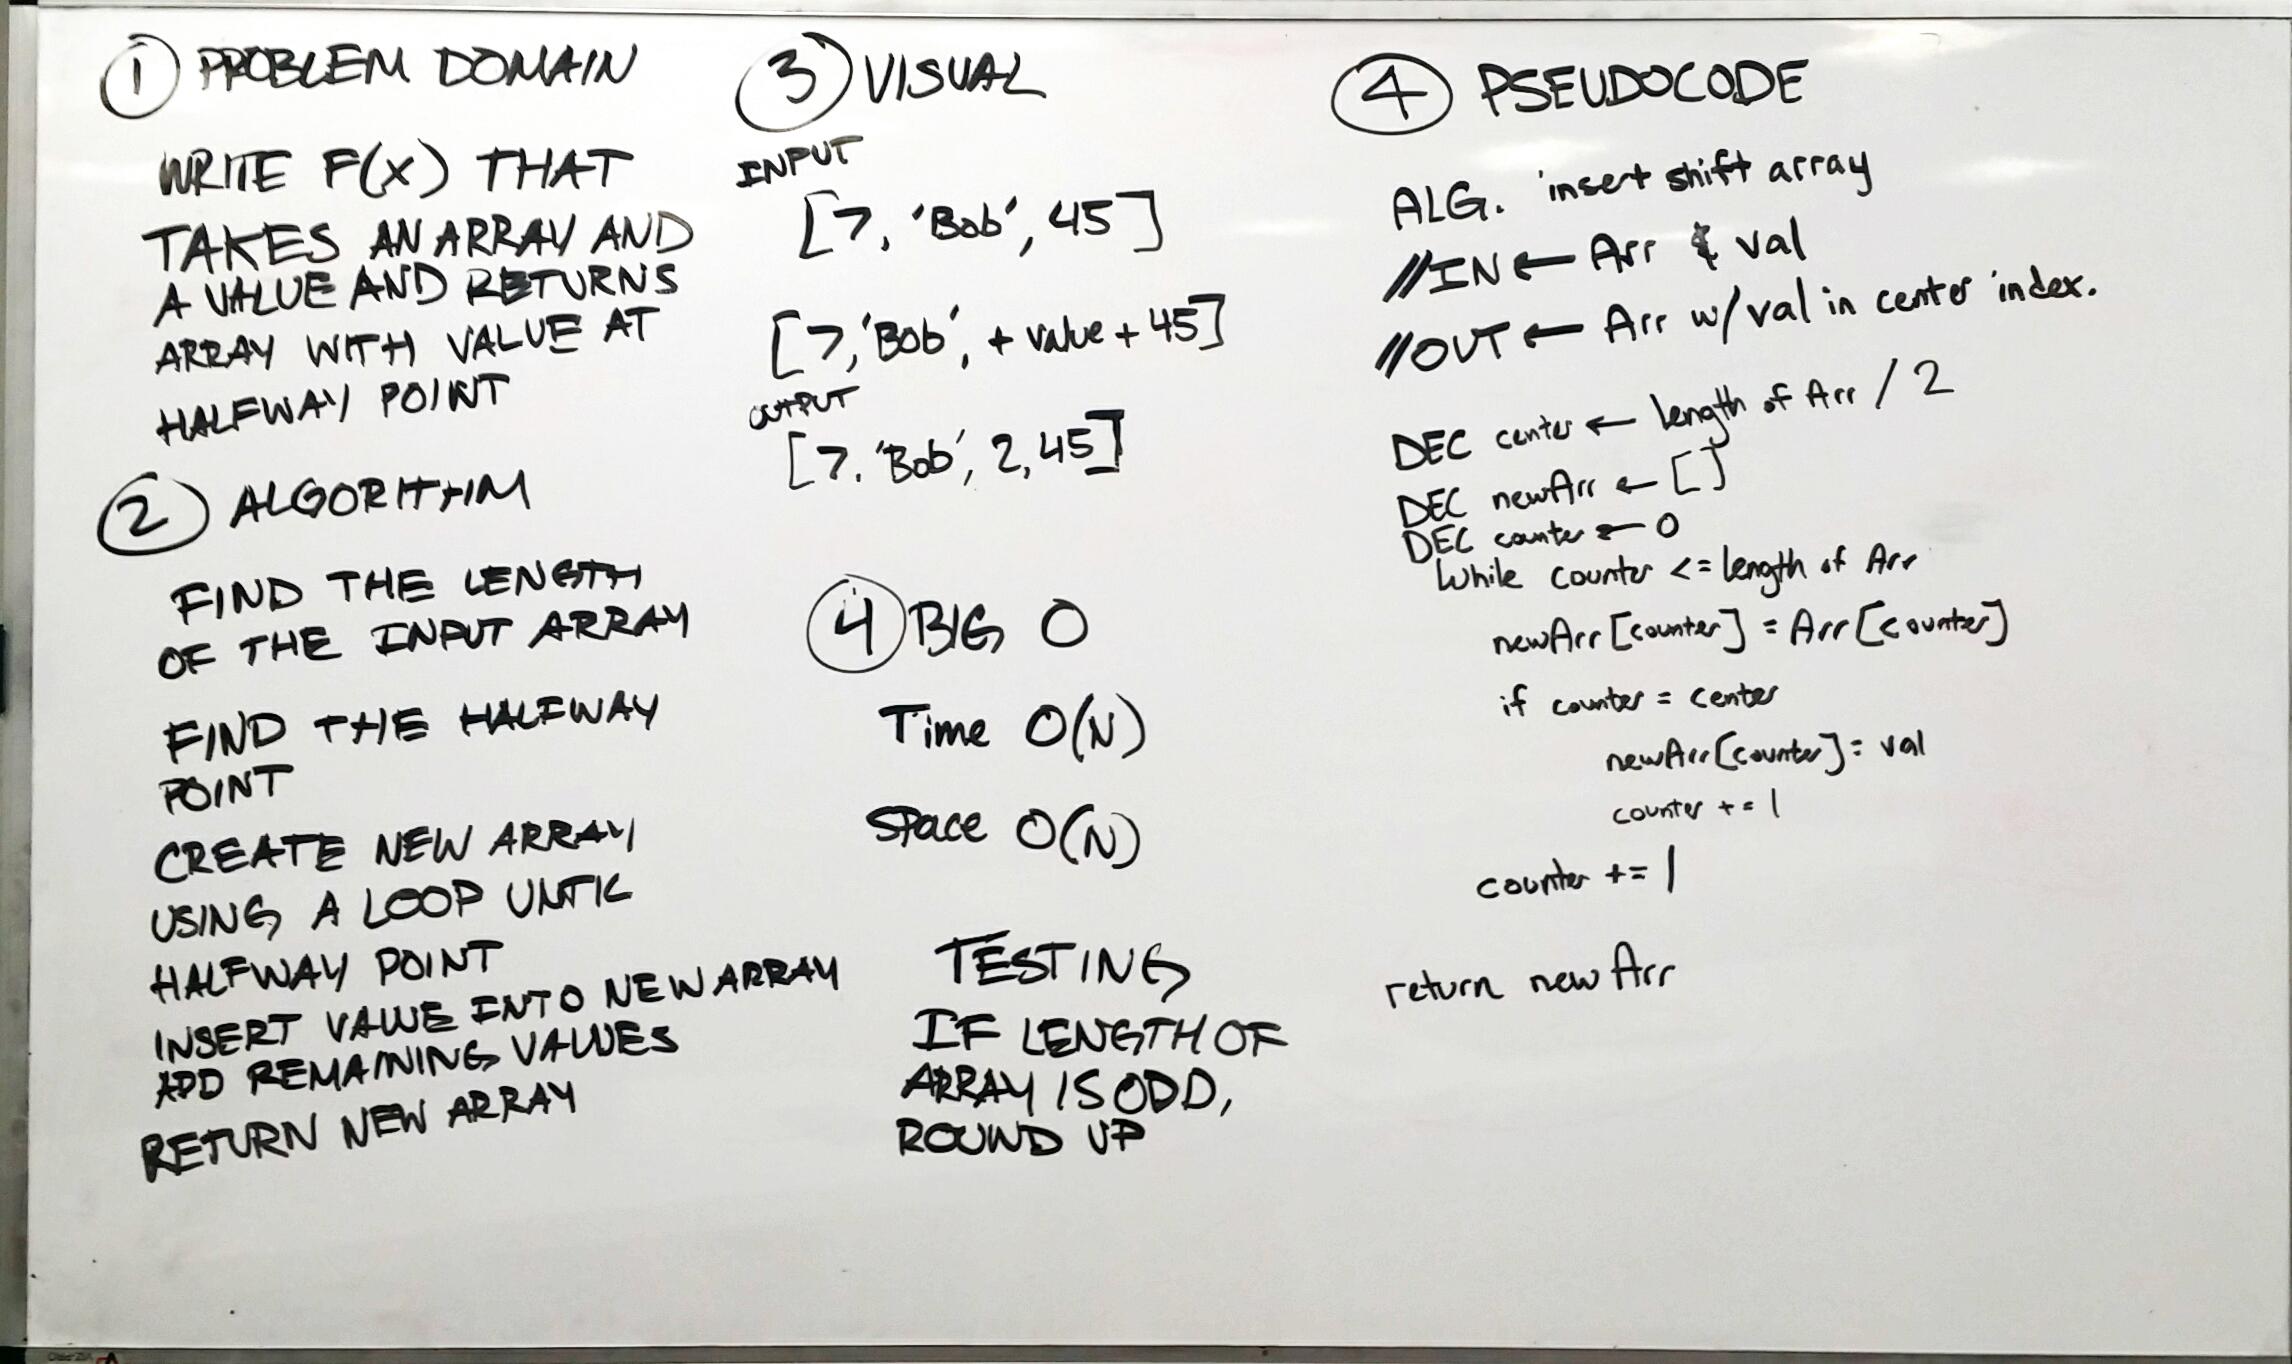 ① PROBLEM DOMAIN
WRITE F(X) THAT
TAKES AN ARRAY AND
A VALUE AND RETURNS
ARRAY WITH VALUE AT
HALFWAY POINT
② ALGORITHM
FIND THE LENGTH
OF THE INPUT ARRAY
FIND THE HALFWAY
POINT
CREATE NEW ARRAY
USING A LOOP UNTIL
HALFWAY POINT
INSERT VALUE INTO NEW ARRAY
ADD REMAINING VALUES
RETURN NEW ARRAY
③ VISUAL
INPUT
[7, 'Bob', 45]
[7, 'Bob', + value + 45]
OUTPUT
[7. 'Bob', 2, 45]
④ BIG O
Time O(N)
Space O(N)
TESTING
IF LENGTH OF
ARRAY IS ODD,
ROUND UP
④ PSEUDOCODE
ALG. insert shift array
//IN ← Arr & val
//OUT ← Arr w/ val in center index.
DEC center ← length of Arr / 2
DEC newArr ← []
DEC counter ← 0
While counter <= length of Arr
newArr[counter] = Arr[counter]
if counter = center
newArr[counter] = val
counter += 1
counter += 1
return newArr